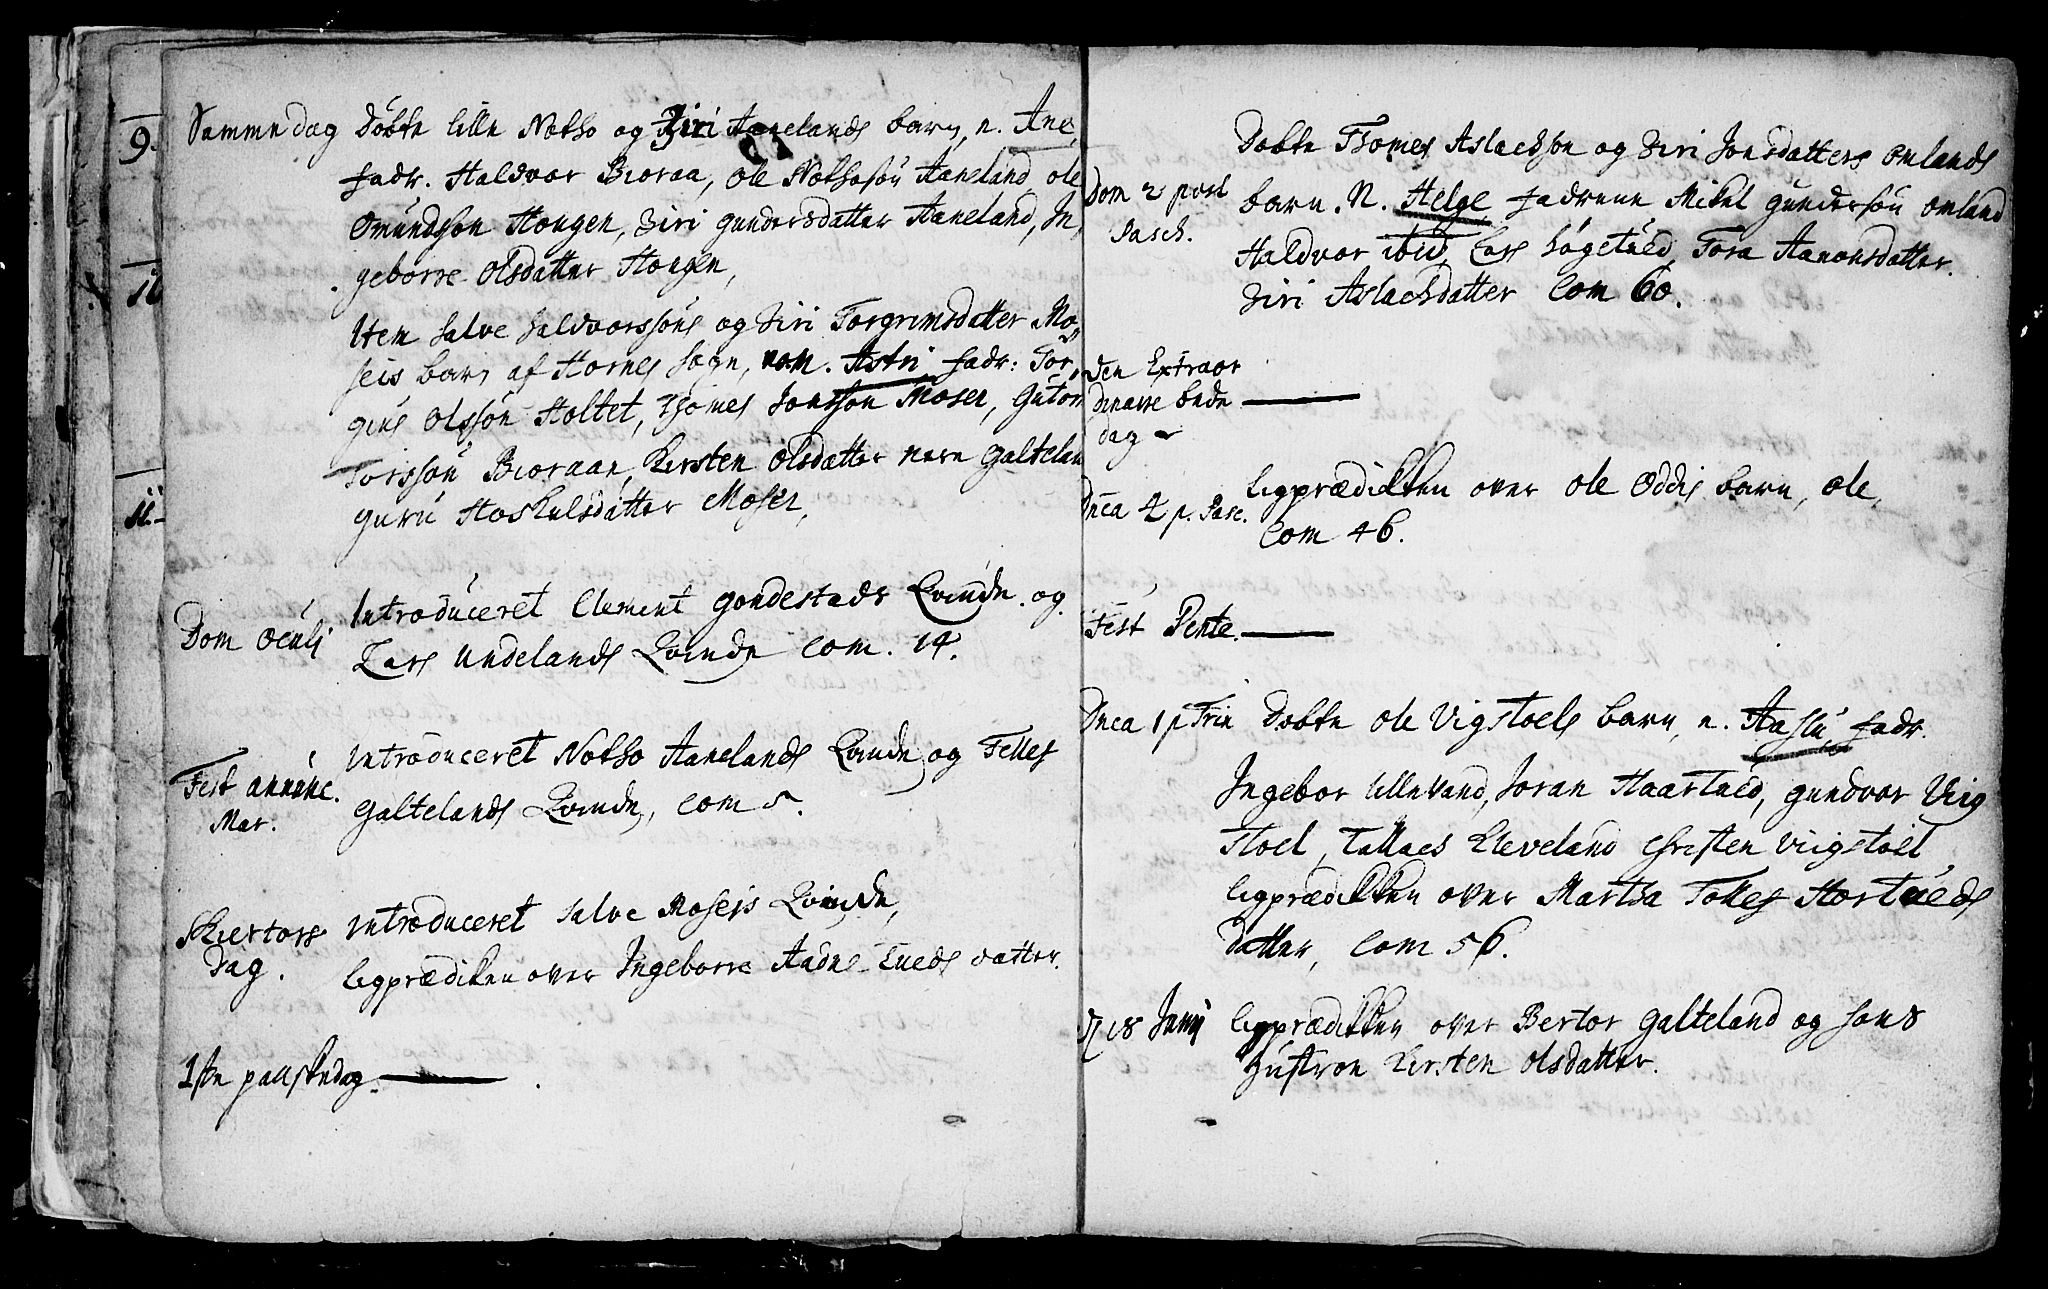 9.
Samme dag Döbte lille Notho og Ziri Aanelands barn, n. Ane,
fadr. Haldvor Bioraa, Ole Nothosön Aaneland, ole
Omundsön Hougen, Ziri gundersdatter Aaneland, In,
geborre Olsdatter Hougen,
Item Salve Haldvorssöns og Ziri Torgrimsdatter Mo,,
seis barn af Hornes sogn, nom. Astri fadr: Tor,,
giuls Olssön Holtet, Thomes Jonssön Moser, Gutorm
Torssön Bioraan, Kirsten Olsdatter nere Galteland
guru Hoskulsdatter Moser,
Dom Oculi
Introduceret Clement gondestads Qvinde. og
Lars Undelands Qvinde Com. 14.
Fest annunc.
Mar.
Introduceret Notho Aanelands Qvinde og Telles
Galtelands Qvinde, Com 5.
Skiertors
Dag.
Introduceret Salve Moseis Qvinde,
ligprædiken over Ingeborre Aadne Tueds datter.
1ste paaskedag.
Dom 2 post
Pasch.
Döbte Thomes Aslachsön og Ziri Jonsdatters omlands
barn. N. Helge fadrene Mikel gundersön omland
Haldvor ibid, Lars Högetued, Tora Aanonsdatter.
Ziri Aslachsdatter Com 60.
Den Extraor
dinaire bede
dag
Dnca 4 p. Pasc.
ligprædikken over Ole Oddis barn, ole,
Com 46.
Fest Pente.
Dnca 1 p Trin Döbte ole Vigstoels barn, n. Aaslu, fadr.
Ingebor Lillevand, Joran Haartued, gundvor Viig
stoel, Tallaes Kleveland Christen Viigstoel
ligprædikken over Martha Tolles Hortueds
datter, Com 56.
18 Junij ligprædikken over Bertor Galteland og hans
Hustroe Kirsten Olsdatter.